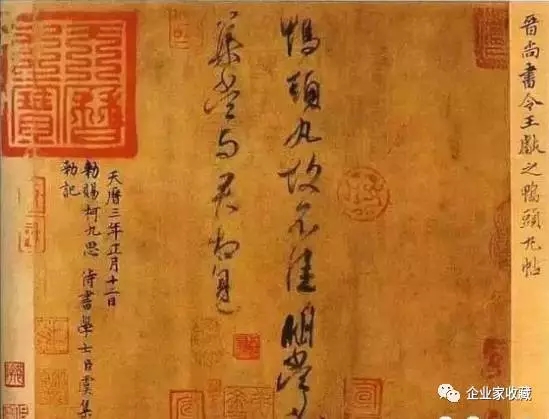 晉尚書令王獻之鴨頭丸帖
鴨頭丸故不佳明當
集當与君相見
天曆之寶
天曆三年正月十二日
勑賜柯九思侍書學士臣虞集
勑記
企业家收藏